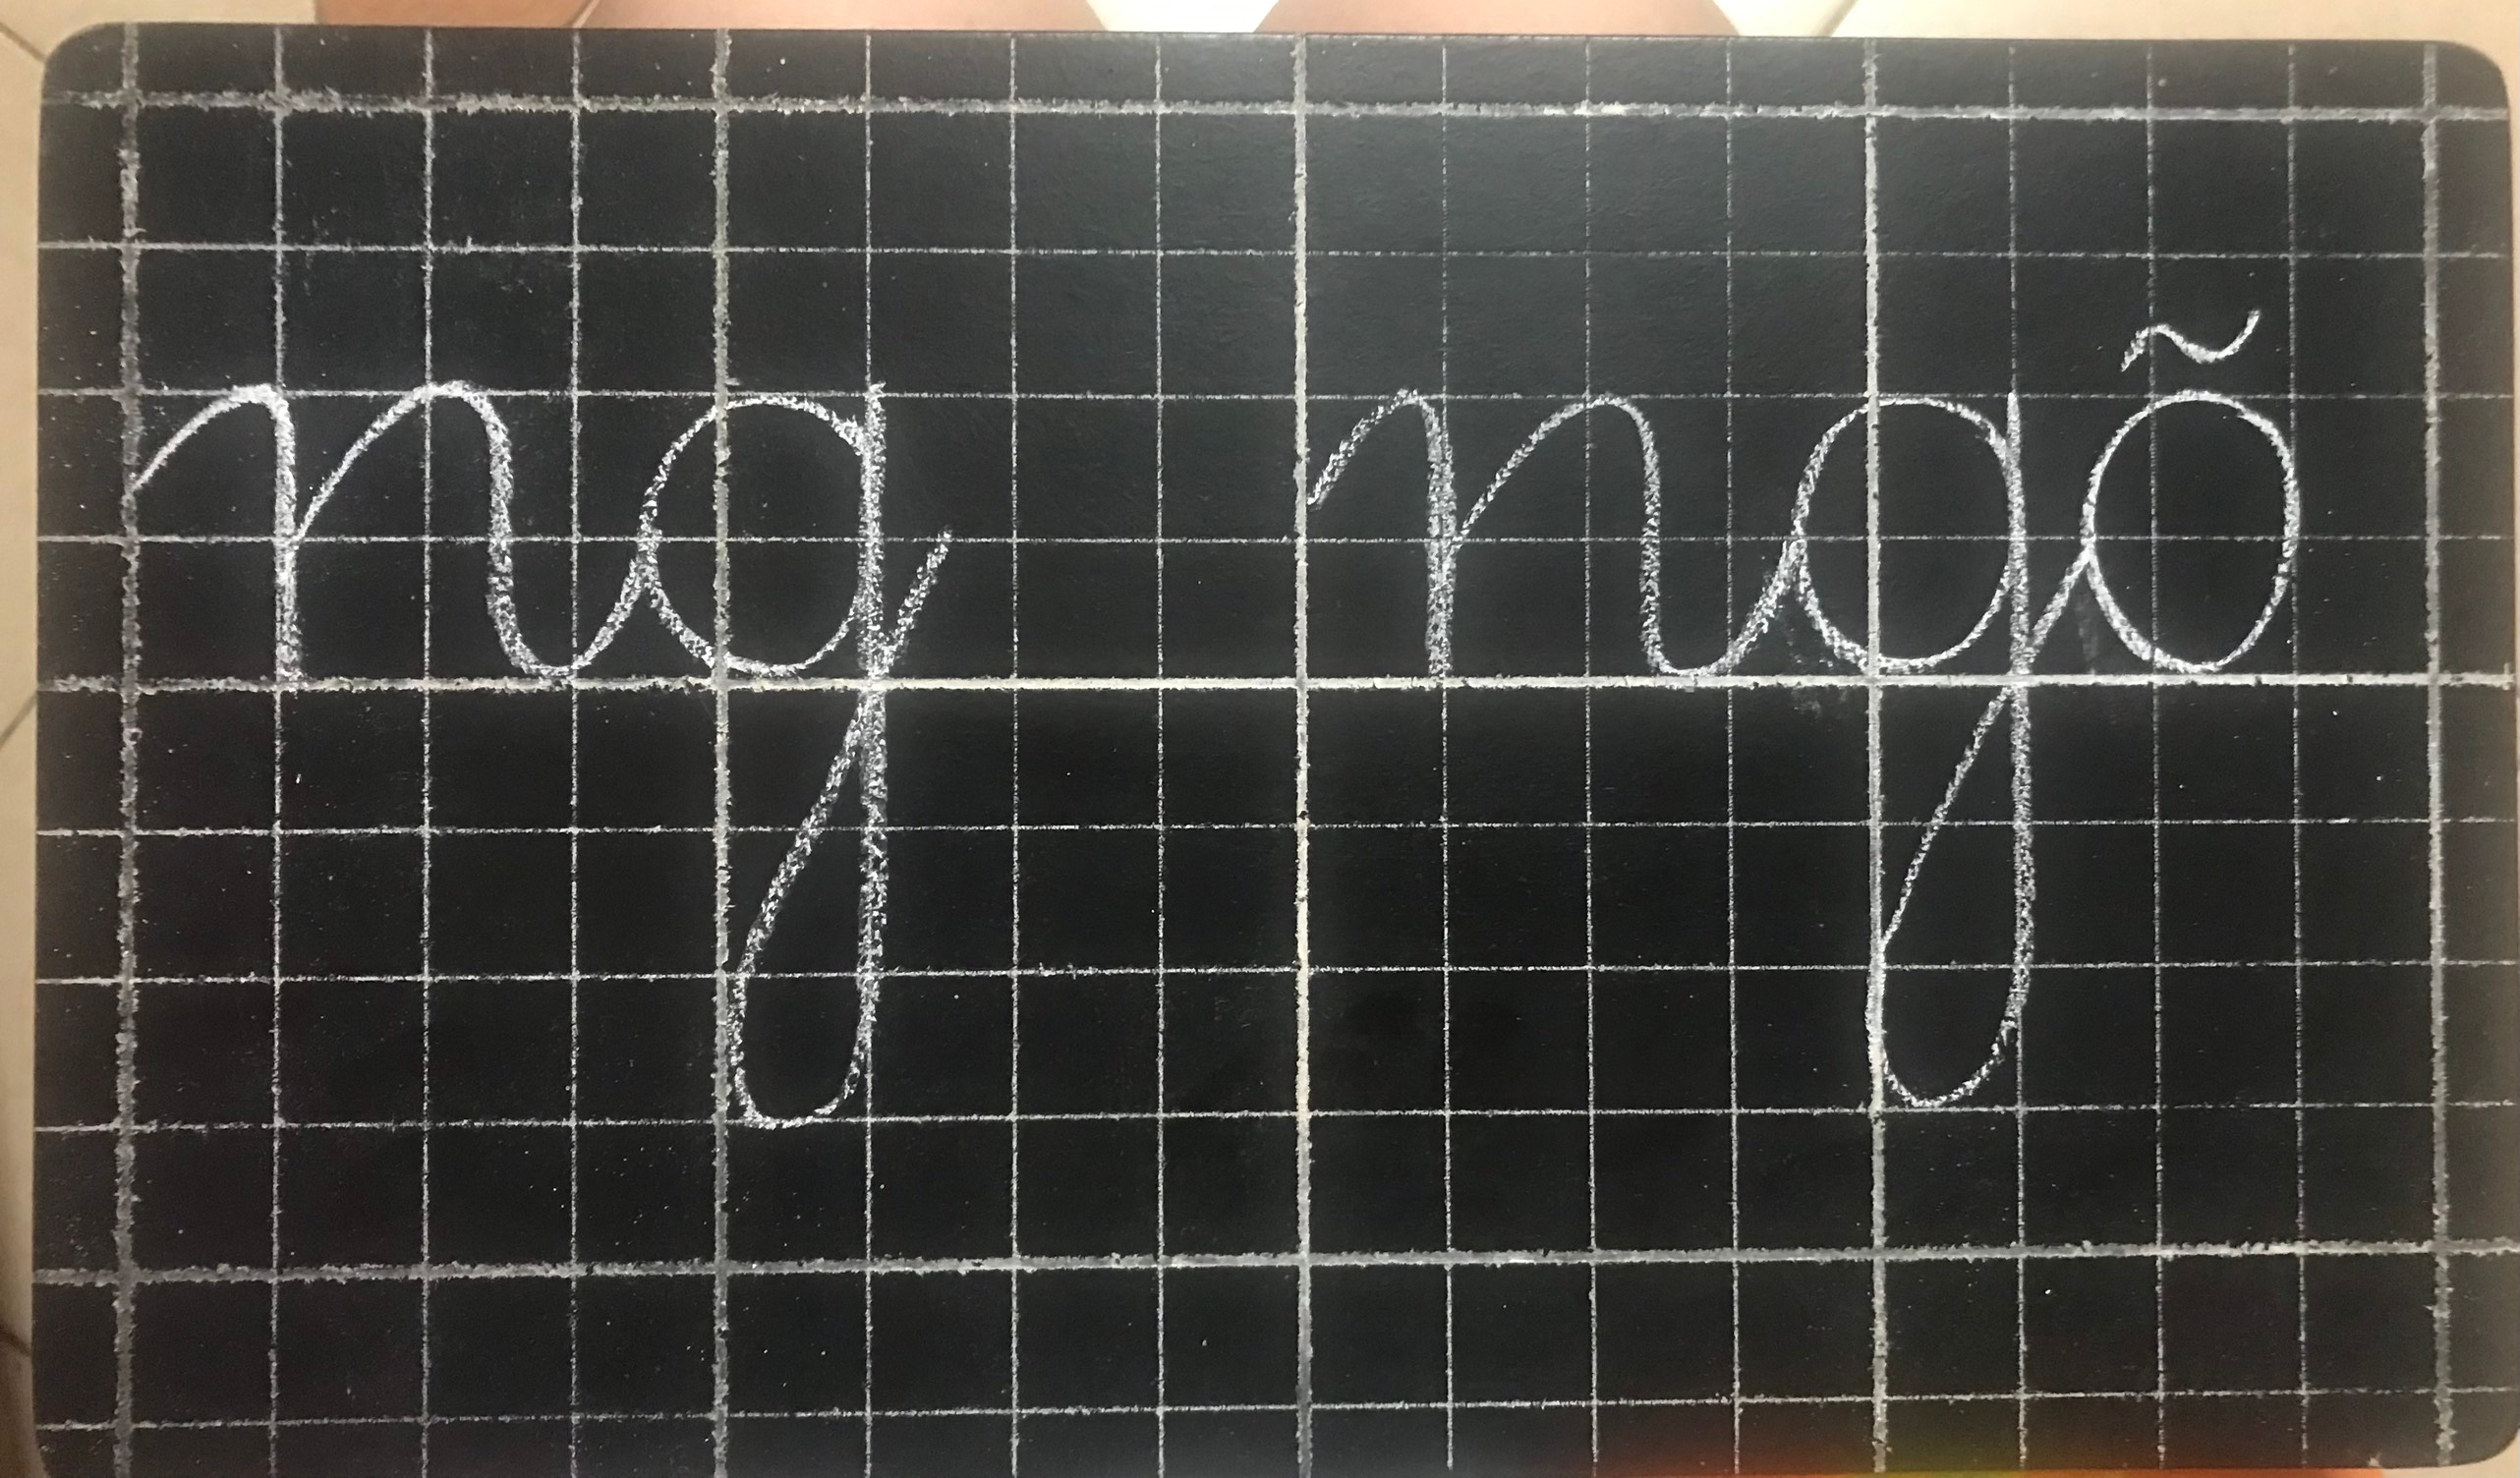 ng ngõ